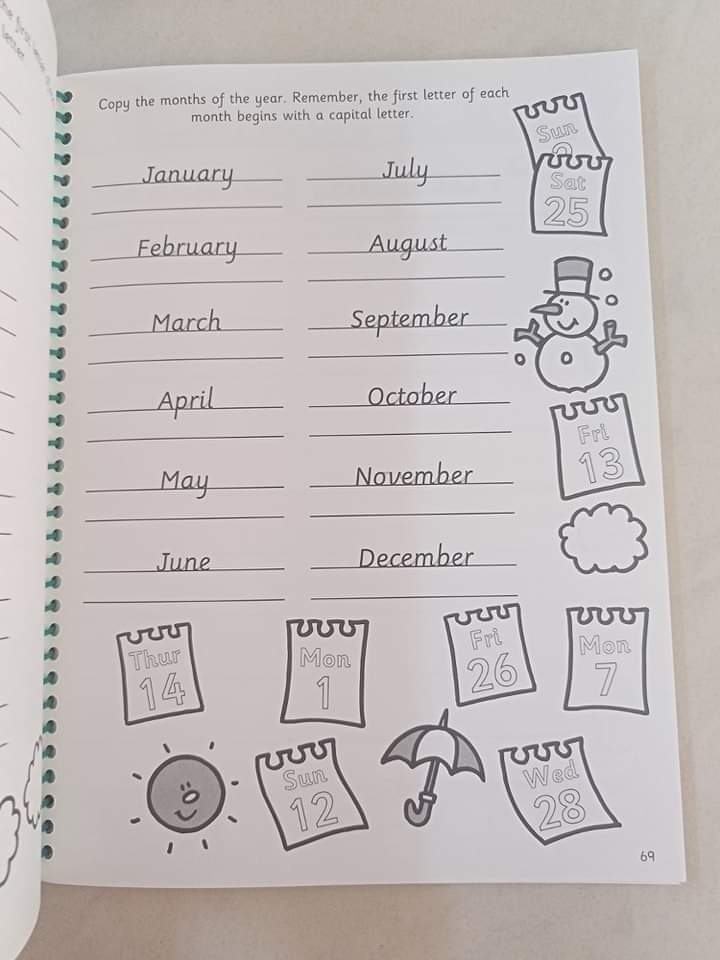 letter
Copy the months of the year. Remember, the first letter of each
month begins with a capital letter.
January
July
February
August
March
September
April
October
May
November
June
December
Sun
Sat
25
Fri
13
Thur
14
Mon
1
Fri
26
Mon
7
Sun
12
Wed
28
69